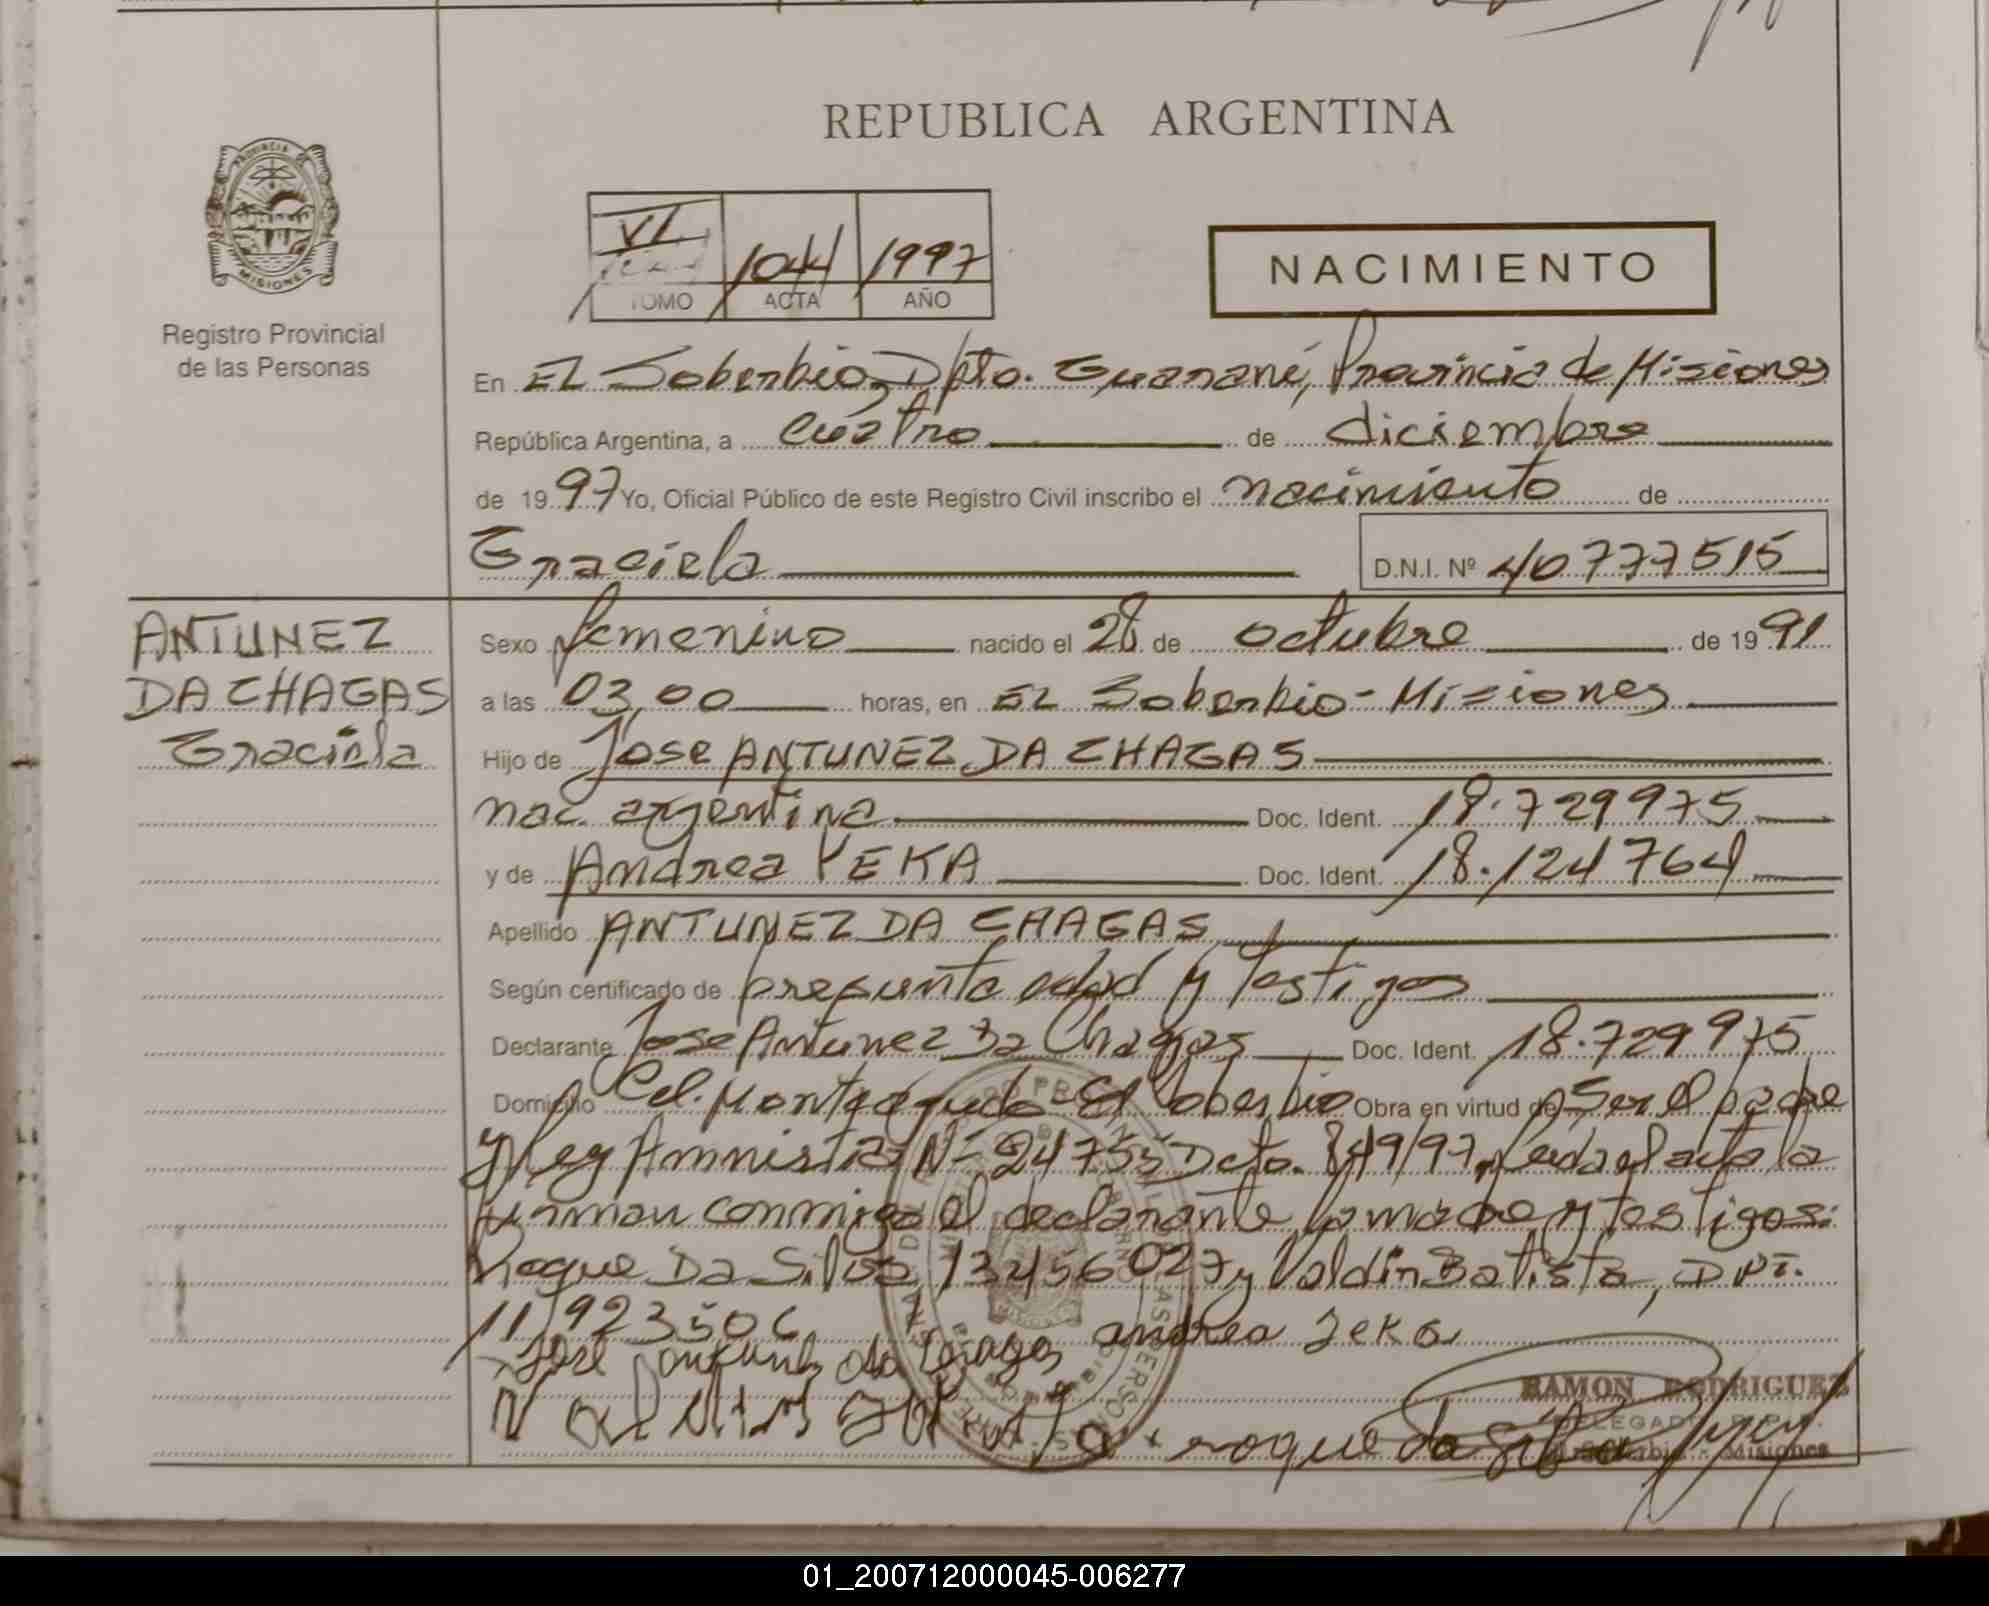 REPUBLICA ARGENTINA
PROVINCIA DE
MISIONES
Registro Provincial
de las Personas
VI
TOMO
1044
ACTA
1997
AÑO
NACIMIENTO
En EL Soberbio, Dpto. Guaraní, Provincia de Misiones
República Argentina, a cuatro de diciembre
de 1997 Yo, Oficial Público de este Registro Civil inscribo el nacimiento de
Graciela D.N.I. Nº 40777515
ANTUNEZ
DA CHAGAS
Graciela
Sexo femenino nacido el 28 de octubre de 1991
a las 03,00 horas, en EL Soberbio - Misiones
Hijo de Jose ANTUNEZ DA CHAGAS
nac. argentina Doc. Ident. 18.729975
y de Andrea YEKA Doc. Ident. 18.124764
Apellido ANTUNEZ DA CHAGAS
Según certificado de presunta edad y testigos
Declarante Jose Antunez Da Chagas Doc. Ident. 18.729975
Domicilio Cel. Monteagudo El Soberbio Obra en virtud de Ser el padre
y Ley Amnistia Nº 24755 Dcto. 849/97, Leida el acta la
firman conmigo el declarante la madre y testigos:
Roque Da Silva, 13456027 y Valdin Batista, DNI.
11923506
Jose antunes da Chagas andrea Jeka
RAMON RODRIGUEZ
DELEGADO
roque da Silva
El Soberbio - Misiones
01_200712000045-006277